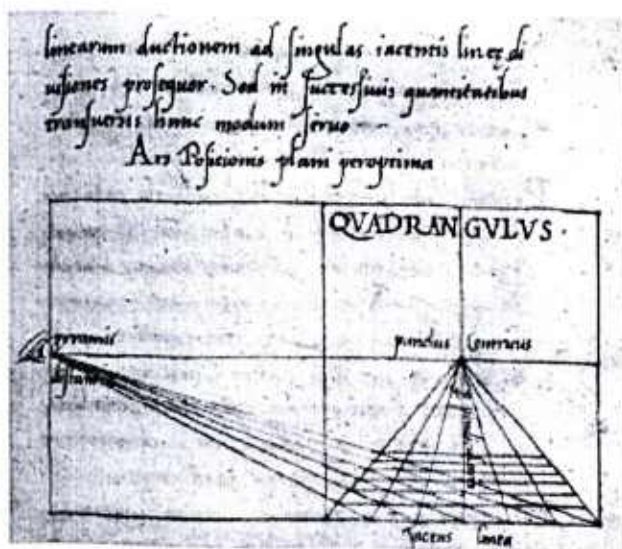 linearum ductionem ad singulas iacentis lineę di
uisiones prosequor. Sed in successiuis quantitatibus
transuersis hunc modum seruo
Ars Positionis plani peroptima
QVADRANGVLVS
punctus centricus
distantia
Iacens linea